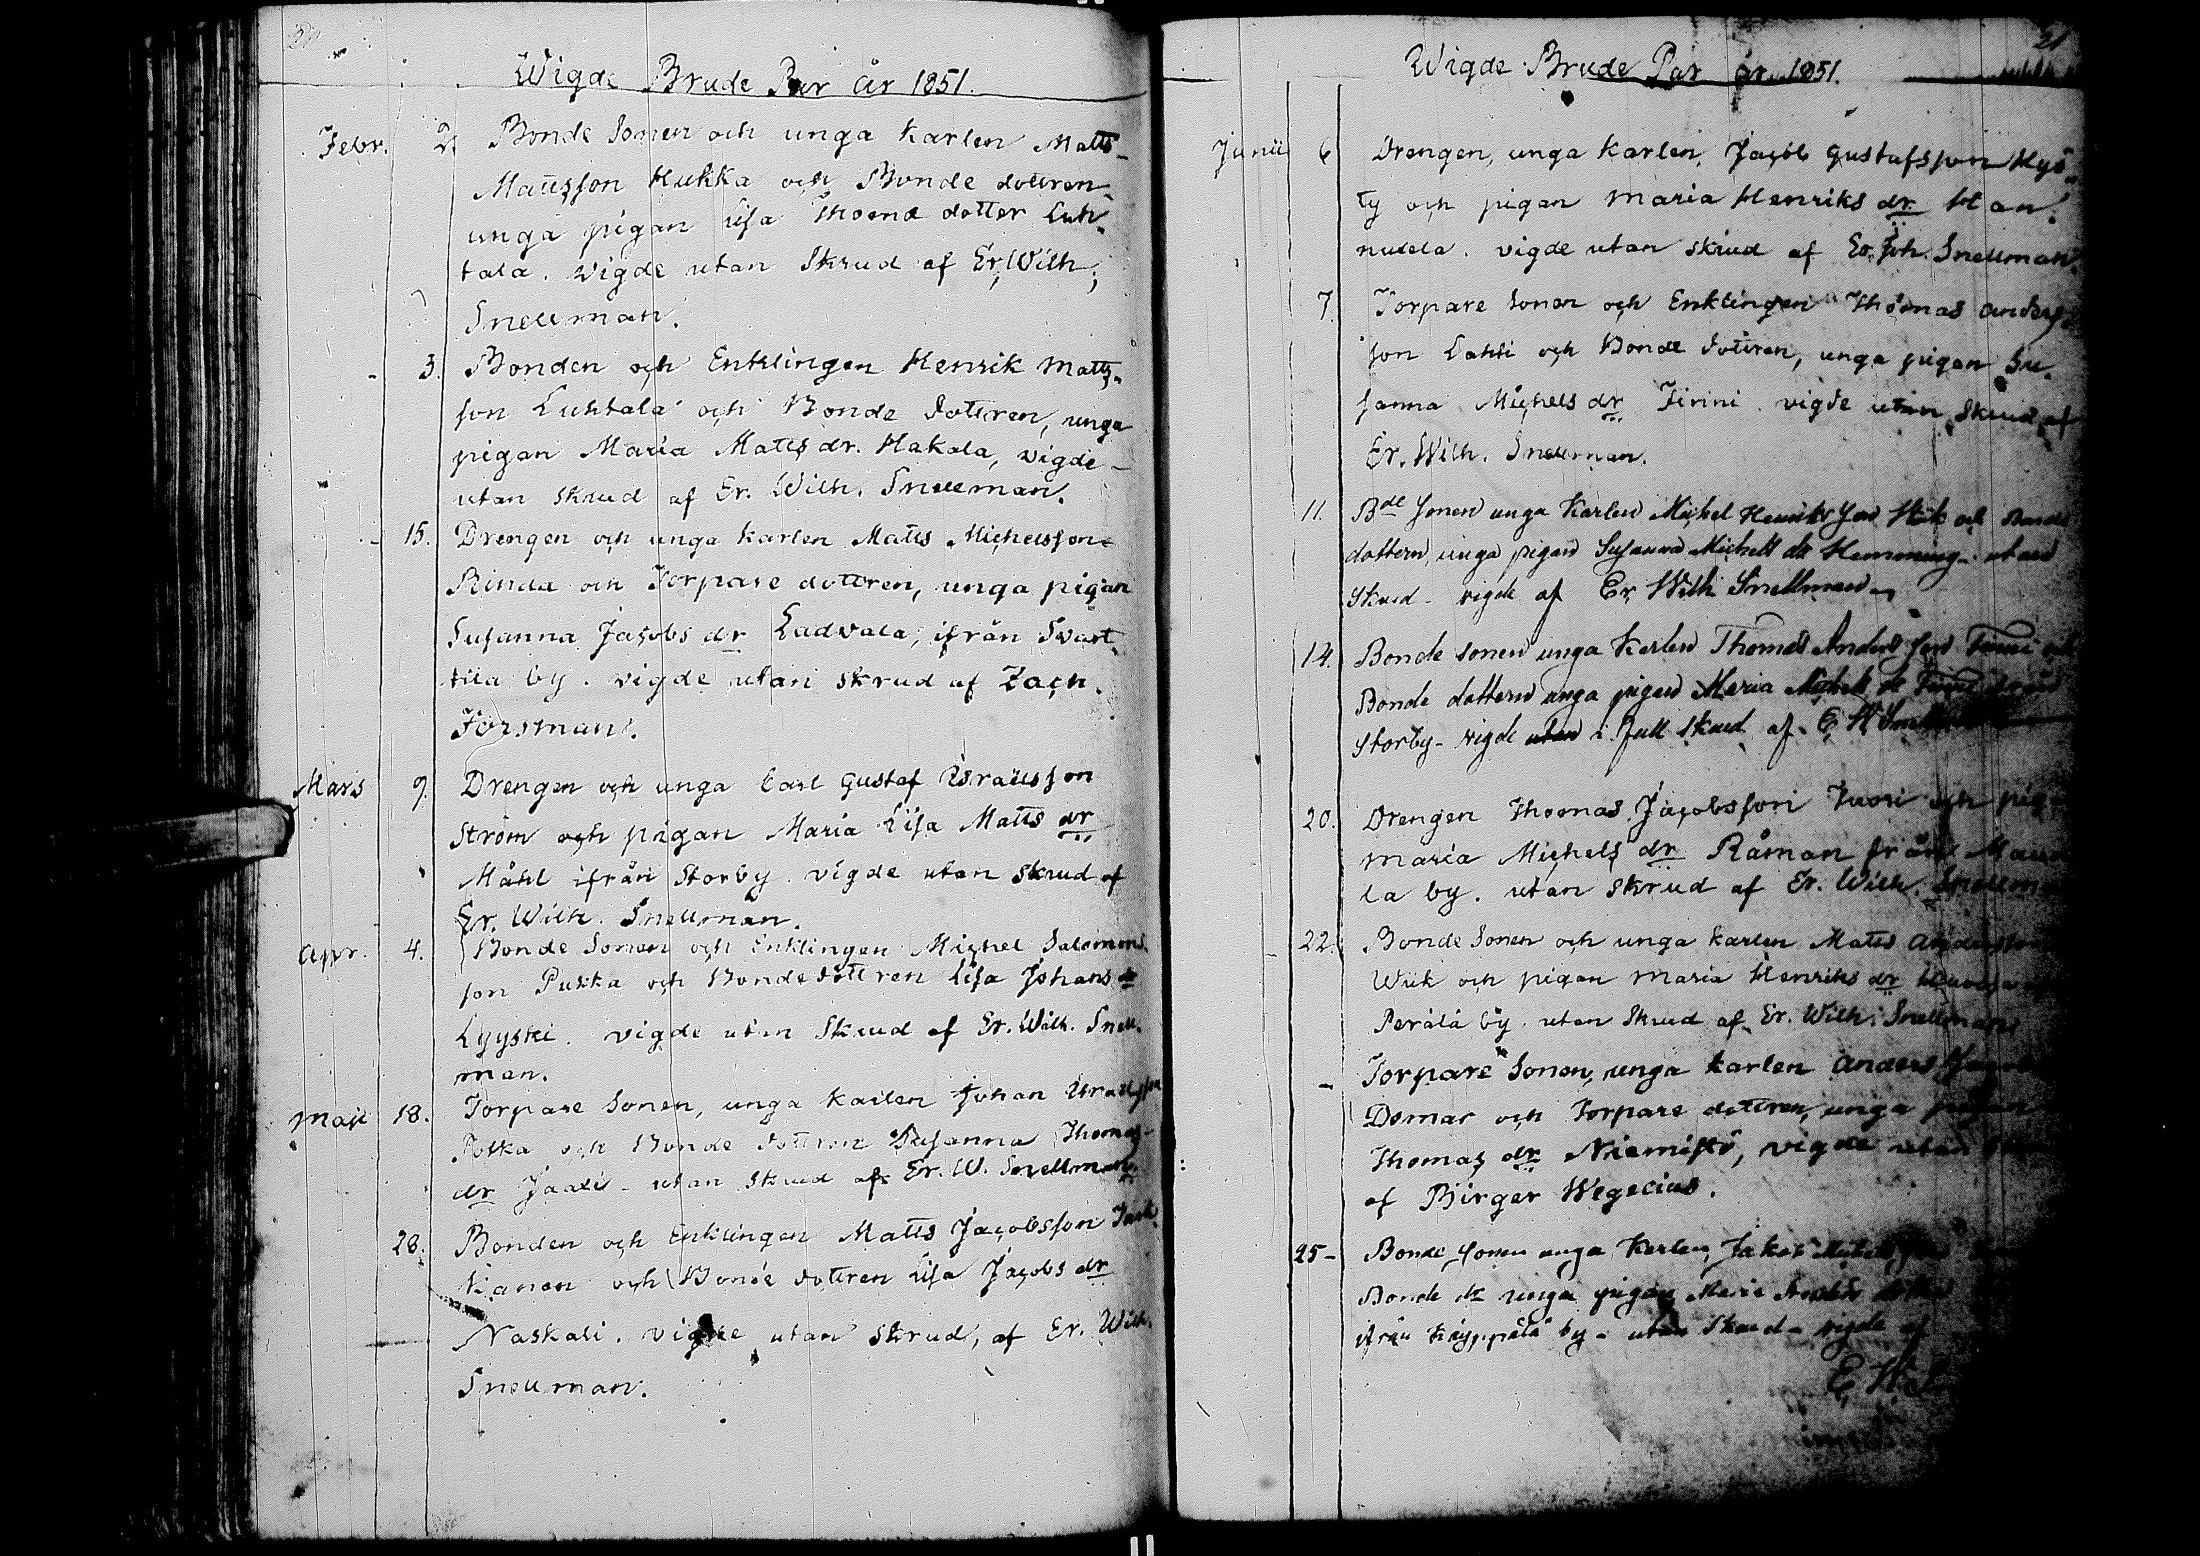 Wigde Brude Par år 1851.
Febr. 2. Bonde Sonen och unga karlen Matts
Mattsson Hukka och Bonde dottren
unga pigan Lisa Thoma dotter Luh-
tala. vigde utan Skrud af Er. Wilh.
Snellman.
- 3. Bonden och Enklingen Henrik Matts-
son Luhtala och Bonde dottren, unga
pigan Maria Matts dr. Hakala, vigde
utan skrud af Er. Wilh. Snellman.
- 15. Drengen och unga karlen Matts Michelsson
Rinda och Torpare dottren, unga pigan
Susanna Jacobs dr Ladvala, ifrån Svart-
tila by. vigde utan skrud af Zach.
Forsman.
Mars 9. Drengen och unga Carl Gustaf Israelsson
Ström och pigan Maria Lisa Matts dr
Måhl ifrån Storby. vigde utan skrud af
Er. Wilh. Snellman.
Apr. 4. Bonde Sonen och Enklingen Michel Salomons-
son Pukka och Bonde dottren Lisa Johans dr
Lyyski. vigde utan Skrud af Er. Wilh. Snell-
man.
Maji 18. Torpare Sonen, unga karlen Johan Israelsson
Potka och Bonde dottren Susanna Thomas
dr Jaati - utan skrud af Er. W. Snellman.
28. Bonden och Enklingen Matts Jacobsson
och Bonde dottren Lisa Jacobs dr
Naskali. vigde utan skrud, af Er. Wilh.
Snellman.
21
Wigde Brude Par år 1851.
Junii 6 Drengen, unga karlen, Jacob Gustafsson Kyö-
ty och pigan Maria Henriks dr Han-
nuksela. vigde utan skrud af Er. Joh. Snellman.
7. Torpare Sonen och Enklingen Thomas Anders-
son Lahti och Bonde dottren, unga pigan Su-
sanna Michels dr Finni. vigde utan skrud af
Er. Wilh. Snellman.
11. Bde Sonen unga Karlen Michel Henriks Son och Bonde
dottern, unga pigan Susanna Michels dr Hemming - utan
Skrud - vigde af Er Wilh Snellman
14. Bonde sonen unga Karlen Thomas Anders son Finni och
Bonde dottern unga pigan Maria Michels dr
Storby - vigde utan i full skrud af E W Snellman
20. Drengen Thomas Jacobsson Juosi och
Maria Michels dr Råman från
la by. utan skrud af Er. Wilh. Snellman
22. Bonde Sonen och unga karlen Matts Andersson
Wiik och pigan Maria Henriks dr
Perälä by. utan skrud af Er. Wilh. Snellman
- Torpare Sonen, unga karlen Anders
Domar och Torpare dottren, unga pigan
Thomas dr Niemistö, vigde utan
af Birger Wegelius.
25 - Bonde Sonen unga Karlen, Jakob
Bonde dr unga pigan Maria
ifrån Käyppälä by - utan Skrud - vigde af
E W